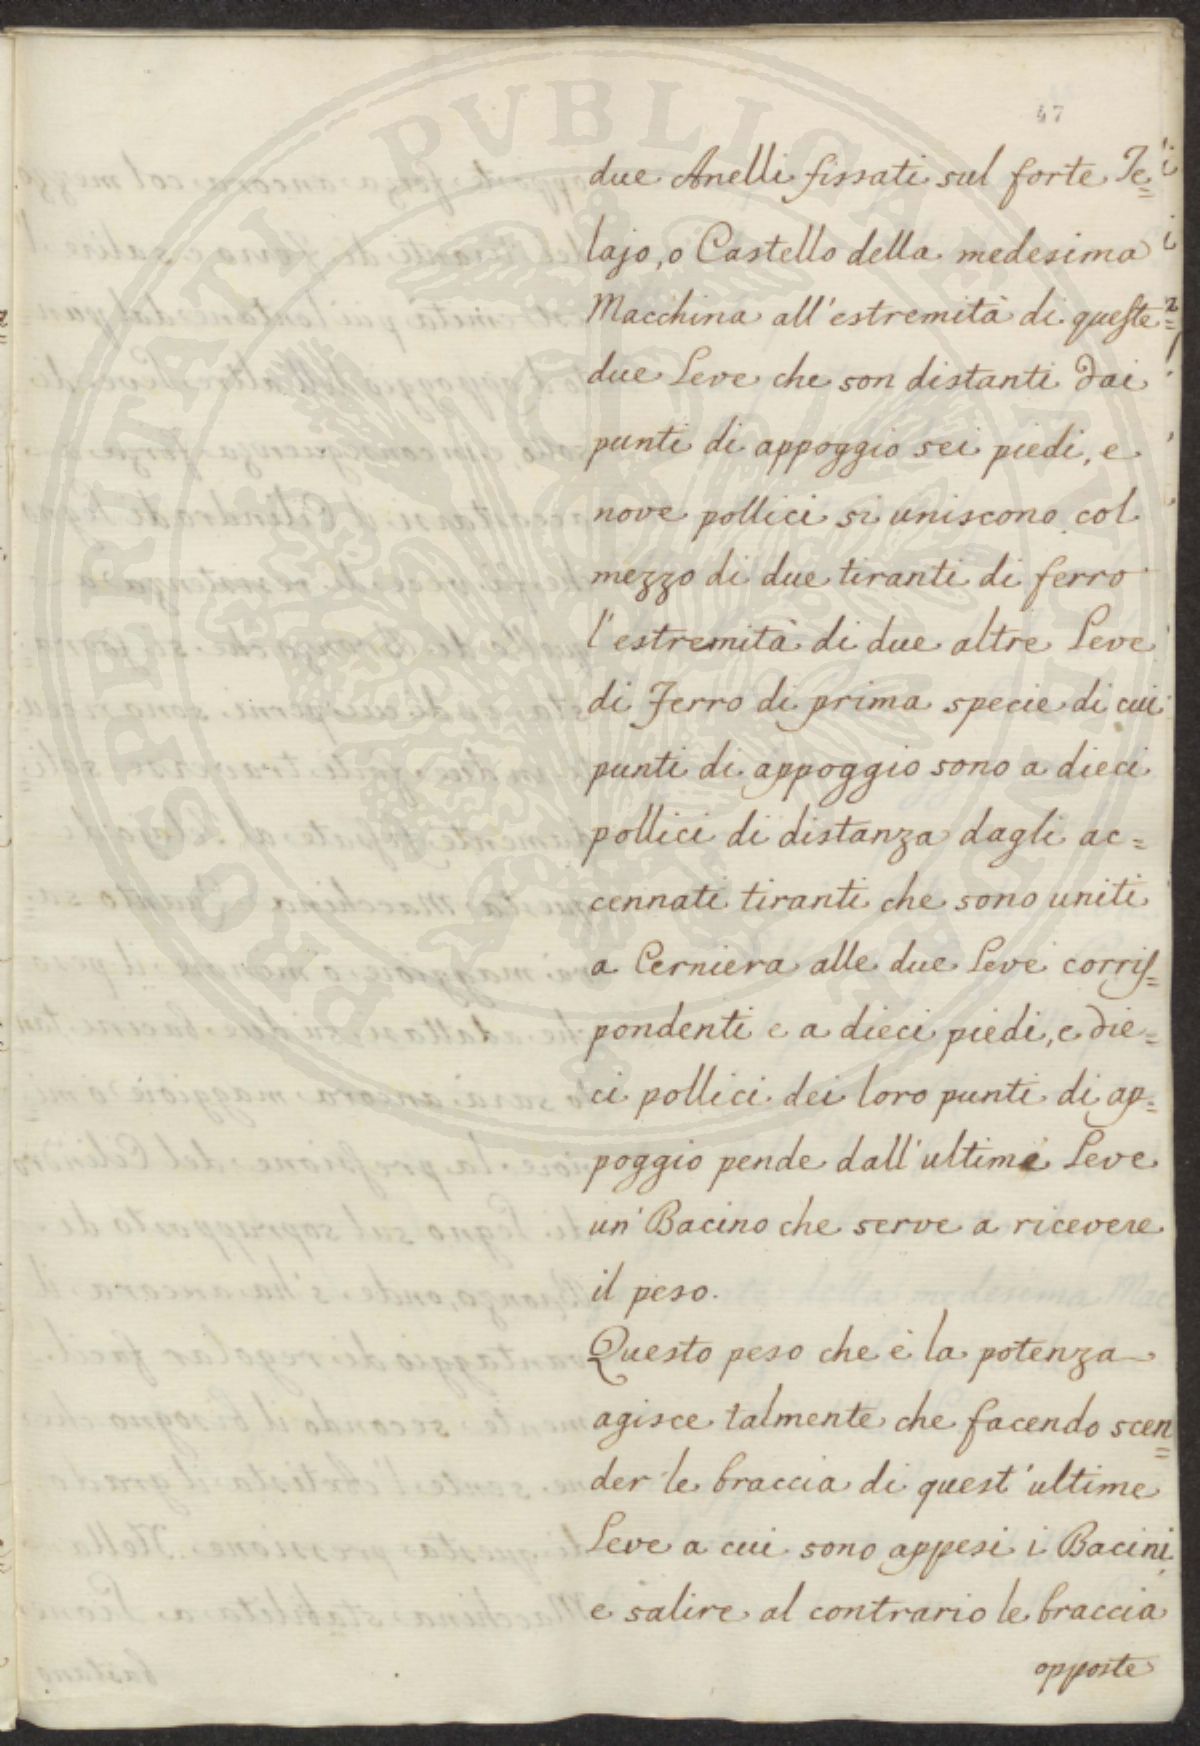 47
due Anelli fissati sul forte Te=
lajo, o Castello della medesima
Macchina all'estremità di queste
due Leve che son distanti dai
punti di appoggio sei piedi, e
nove pollici si uniscono col
mezzo di due tiranti di ferro
l'estremità di due altre Leve
di Ferro di prima specie di cui
punti di appoggio sono a dieci
pollici di distanza dagli ac=
cennati tiranti che sono uniti
a Cerniera alle due Leve corris=
pondenti e a dieci piedi, e die=
ci pollici dei loro punti di ap=
poggio pende dall'ultime Leve
un' Bacino che serve a ricevere
il peso.
Questo peso che è la potenza
agisce talmente che facendo scen=
der le braccia di quest'ultime
Leve a cui sono appesi i Bacini
e salire al contrario le braccia
opposte
PROSPERITATI PUBLICAE AUGENDAE